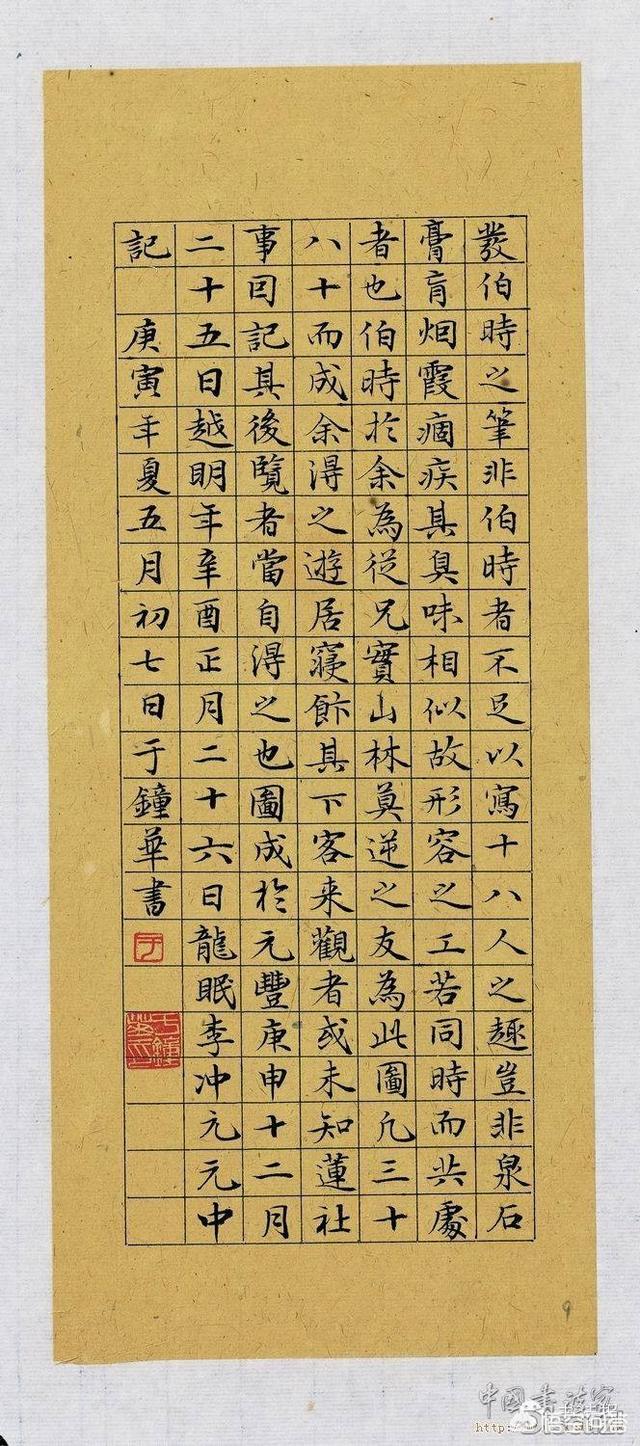 發伯時之筆非伯時者不足以寫十八人之趣豈非泉石
膏肓烟霞痼疾具臭味相似故形容之工若同時而共處
者也伯時於余為從兄實山林莫逆之友為此圖凡三十
八十而成余得之遊居寢飰其下客来觀者或未知蓮社
事囙記其後覽者當自得之也圖成於元豐庚申十二月
二十五日越明年辛酉正月二十六日龍眠李冲元元中
記 庚寅年夏五月初七日于鐘華書
于
于鐘華印
9
中國書法家
http:
悟空问答